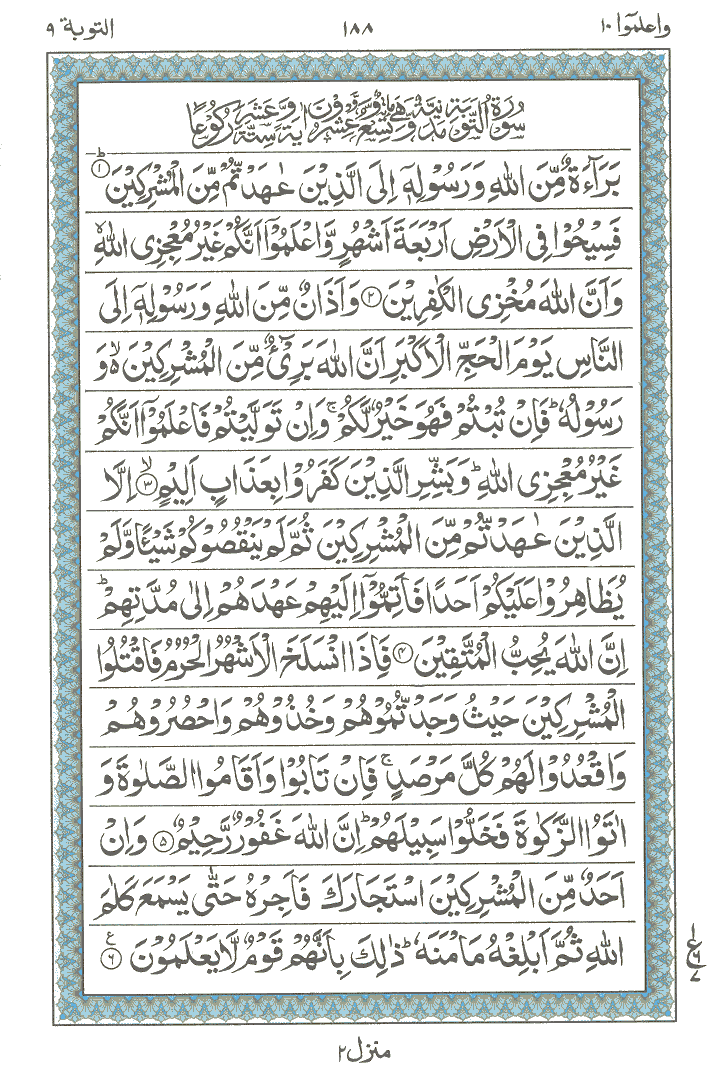 واعلموٓا ١٠
١٨٨
التوبة ٩
سُوْرَةُ التَّوْبَةِ مَدَنِيَّةٌ وَّهِيَ مِائَةٌ وَّتِسْعٌ وَّعِشْرُوْنَ اٰيَةً وَّسِتَّةَ عَشَرَ رُكُوْعًا
بَرَآءَةٌ مِّنَ اللّٰهِ وَرَسُوْلِهٖٓ اِلَى الَّذِيْنَ عٰهَدْتُّمْ مِّنَ الْمُشْرِكِيْنَ ؕ۝۱
فَسِيْحُوْا فِى الْاَرْضِ اَرْبَعَةَ اَشْهُرٍ وَّاعْلَمُوْٓا اَنَّكُمْ غَيْرُ مُعْجِزِى اللّٰهِ ۙ
وَاَنَّ اللّٰهَ مُخْزِى الْكٰفِرِيْنَ ۝۲ وَاَذَانٌ مِّنَ اللّٰهِ وَرَسُوْلِهٖٓ اِلَى
النَّاسِ يَوْمَ الْحَجِّ الْاَكْبَرِ اَنَّ اللّٰهَ بَرِىْٓءٌ مِّنَ الْمُشْرِكِيْنَ ۙ۬ وَ
رَسُوْلُهٗ ؕ فَاِنْ تُبْتُمْ فَهُوَ خَيْرٌ لَّكُمْ ۚ وَاِنْ تَوَلَّيْتُمْ فَاعْلَمُوْٓا اَنَّكُمْ
غَيْرُ مُعْجِزِى اللّٰهِ ؕ وَبَشِّرِ الَّذِيْنَ كَفَرُوْا بِعَذَابٍ اَلِيْمٍ ۙ۝۳ اِلَّا
الَّذِيْنَ عٰهَدْتُّمْ مِّنَ الْمُشْرِكِيْنَ ثُمَّ لَمْ يَنْقُصُوْكُمْ شَيْئًا وَّلَمْ
يُظَاهِرُوْا عَلَيْكُمْ اَحَدًا فَاَتِمُّوْٓا اِلَيْهِمْ عَهْدَهُمْ اِلٰى مُدَّتِهِمْ ؕ
اِنَّ اللّٰهَ يُحِبُّ الْمُتَّقِيْنَ ۝۴ فَاِذَا انْسَلَخَ الْاَشْهُرُ الْحُرُمُ فَاقْتُلُوا
الْمُشْرِكِيْنَ حَيْثُ وَجَدْتُّمُوْهُمْ وَخُذُوْهُمْ وَاحْصُرُوْهُمْ
وَاقْعُدُوْا لَهُمْ كُلَّ مَرْصَدٍ ۚ فَاِنْ تَابُوْا وَاَقَامُوا الصَّلٰوةَ وَ
اٰتَوُا الزَّكٰوةَ فَخَلُّوْا سَبِيْلَهُمْ ؕ اِنَّ اللّٰهَ غَفُوْرٌ رَّحِيْمٌ ۝۵ وَاِنْ
اَحَدٌ مِّنَ الْمُشْرِكِيْنَ اسْتَجَارَكَ فَاَجِرْهُ حَتّٰى يَسْمَعَ كَلٰمَ
اللّٰهِ ثُمَّ اَبْلِغْهُ مَاْمَنَهٗ ؕ ذٰلِكَ بِاَنَّهُمْ قَوْمٌ لَّا يَعْلَمُوْنَ ۝۶ ع
١
ع ٦
٧
منزل ٢